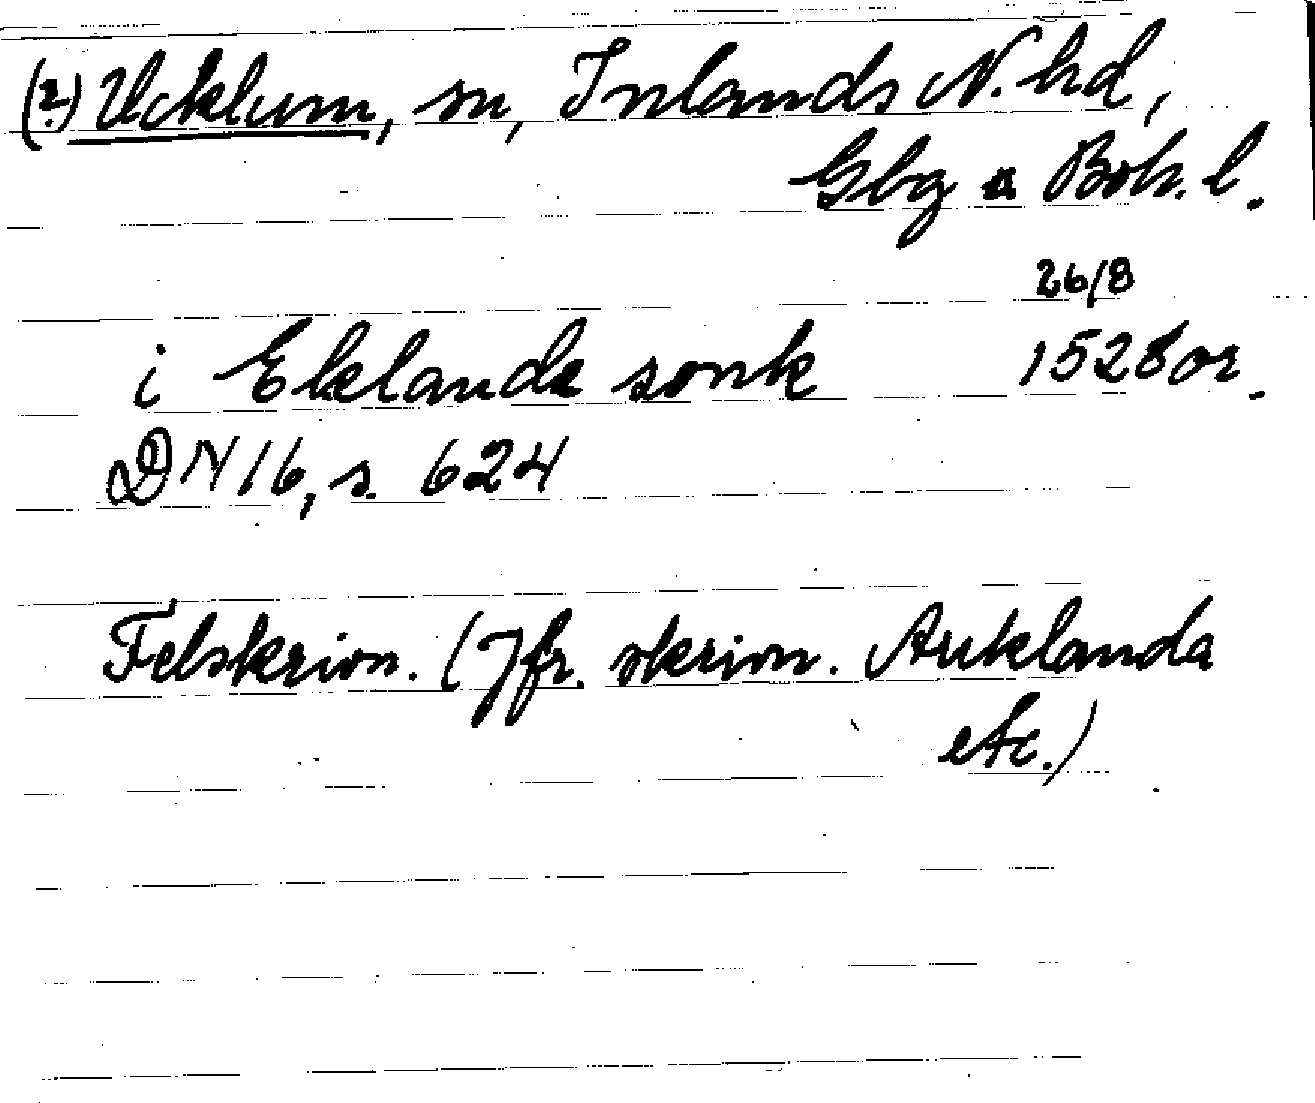 (?) Ucklum, sn, Inlands N. hd,
Gbg o Boh. l.
26/8
i Eklande sonk 1528 or.
DN 16, s. 624
Felskrivn. (Jfr. skrivn. Auklanda
etc.)